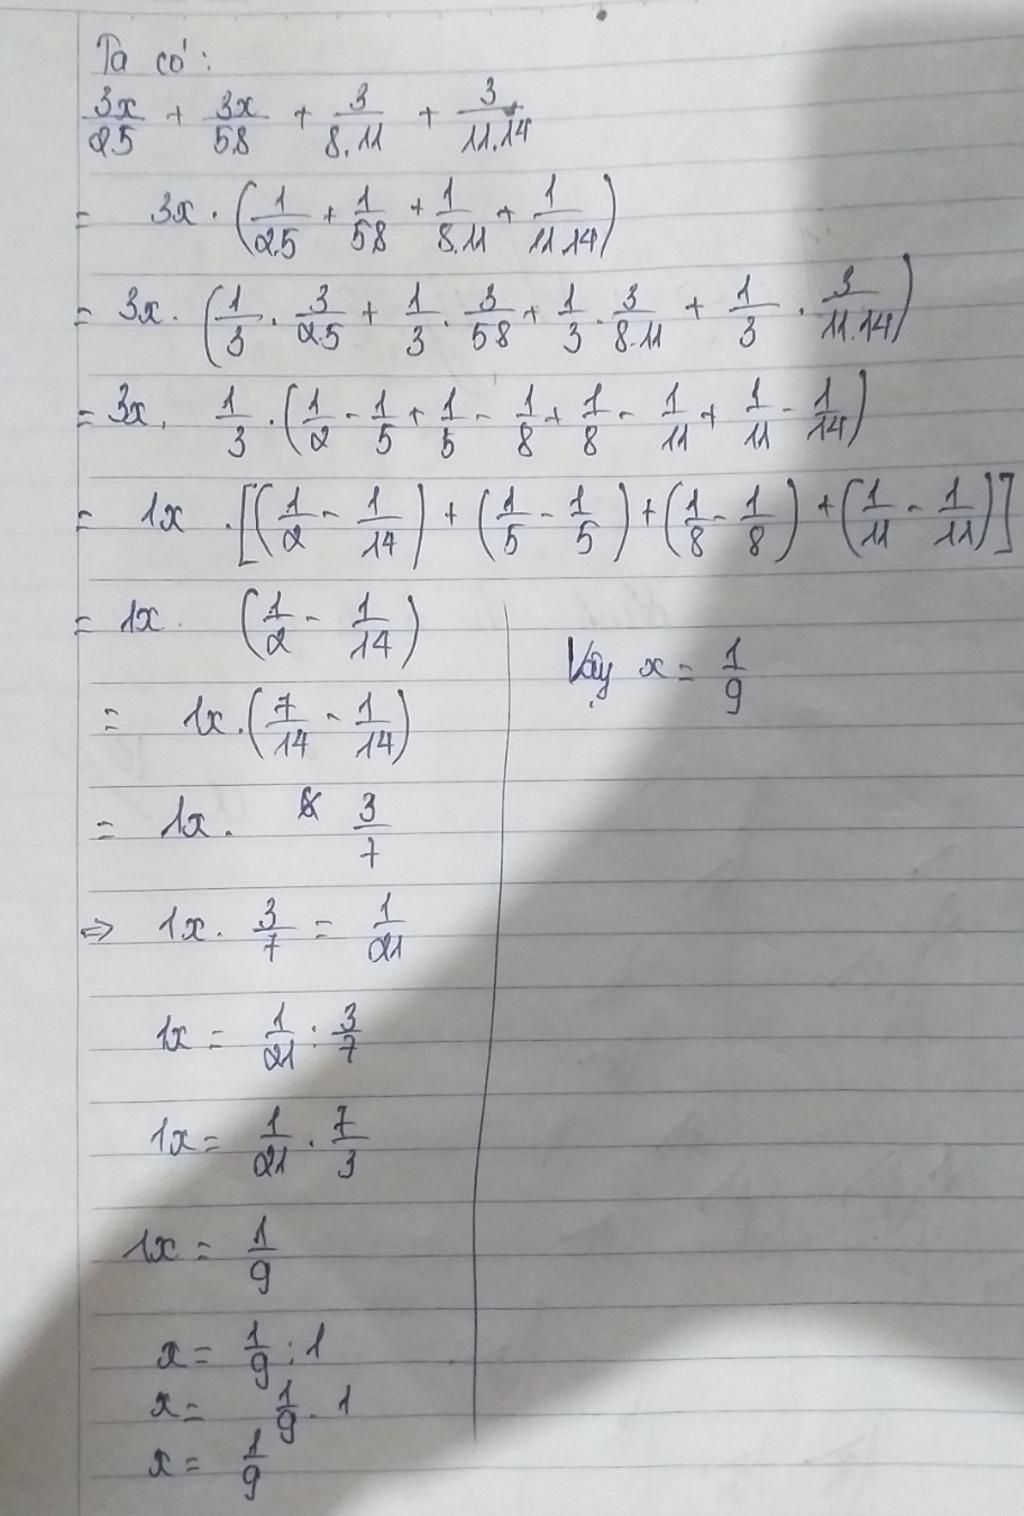 Ta có:
3x/2.5 + 3x/5.8 + 3/8.11 + 3/11.14
= 3x . (1/2.5 + 1/58 + 1/8.11 + 1/11.14)
= 3x . (1/3 . 3/2.5 + 1/3 . 3/58 + 1/3 . 3/8.11 + 1/3 . 3/11.14)
= 3x . 1/3 . (1/2 - 1/5 + 1/5 - 1/8 + 1/8 - 1/11 + 1/11 - 1/14)
= 1x . [(1/2 - 1/14) + (1/5 - 1/5) + (1/8 - 1/8) + (1/11 - 1/11)]
= 1x . (1/2 - 1/14)
= 1x . (7/14 - 1/14)
= 1x . 3/7
=> 1x . 3/7 = 1/21
1x = 1/21 : 3/7
1x = 1/21 . 7/3
1x = 1/9
x = 1/9 : 1
x = 1/9 . 1
x = 1/9
Vậy x = 1/9